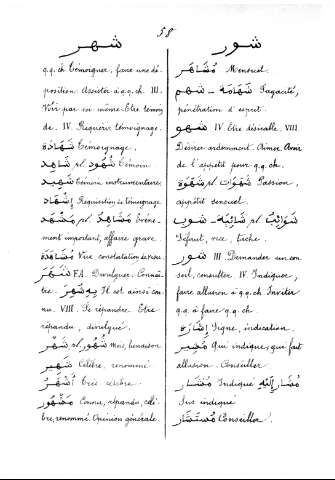 58
شهر
شور
q.q. ch. Témoigner, faire une dé-
position. Assister à q.q. ch. III.
Voir par soi même. Etre témoin
de. IV. Requérir témoignage.
شَهَادَة Témoignage.
شَاهِد pl. شُهُود Témoin
شَهِيد Témoin instrumentaire
إِشْهَاد Réquisition de témoignage
مَشْهَد pl. مَشَاهِد Evéne-
ment important, affaire grave.
مُشَاهَدَة Vue, constatation de
شَهَرَ F.A. Divulguer. Connaî-
tre. Il est ainsi con-
nu. VIII. Se répandre. Etre
répandu, divulgué.
شَهْر pl. شُهُور Mois, lunaison
شَهِير Célèbre, renommé
أَشْهَر Très célèbre.
مَشْهُور Connu, répandu, célè-
bre, renommé. Opinion générale.
مُشَاهَر Mensuel.
شَهْم - شَهَامَة Sagacité,
pénétration d'esprit.
شهو IV. Etre désirable. VIII
Désirer ardemment. Aimer. Avoir
de l'appétit pour q.q. ch.
شَهْوَة pl. شَهَوَات Passion,
appétit sensuel.
شوب - شَائِبَة pl. شَوَائِب
Défaut, vice, tache.
شور III Demander un con-
seil, consulter. IV. Indiquer,
faire allusion à q.q. ch. Inviter
q.q. à faire q.q. ch.
إِشَارَة Signe, indication.
مُشِير Qui indique, qui fait
allusion. Conseiller
مُشَار Indiqué مُشَار إِلَيْهِ
Sus indiqué
مُسْتَشَار Conseiller.